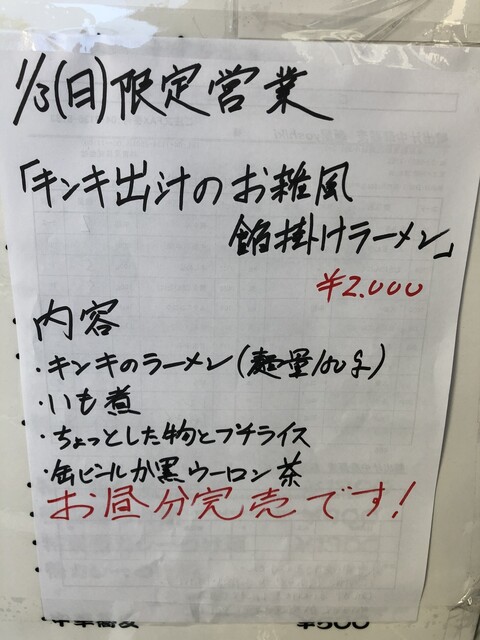 1/3(日)限定営業
「キンキ出汁のお雑風
餡掛けラーメン」
¥2.000
内容
・キンキのラーメン(麺量100g)
・いも煮
・ちょっとした物とプチライス
・缶ビールか黒ウーロン茶
お昼分完売です!
¥500